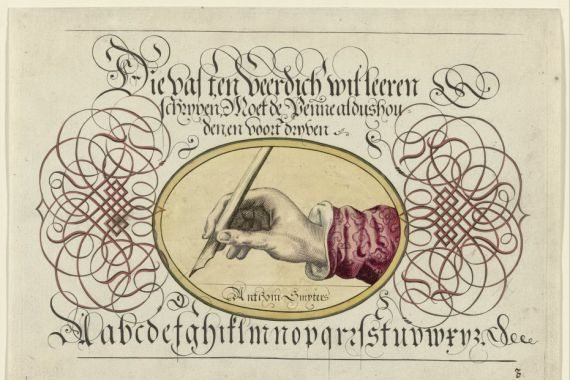 Die vast en veerdich wil leeren
schryven, Moet de Penne aldus hou
den en voort dryven
Anthoni Smyters
A a b c d e f g h i k l m n o p q r z s s t u v w x y z.